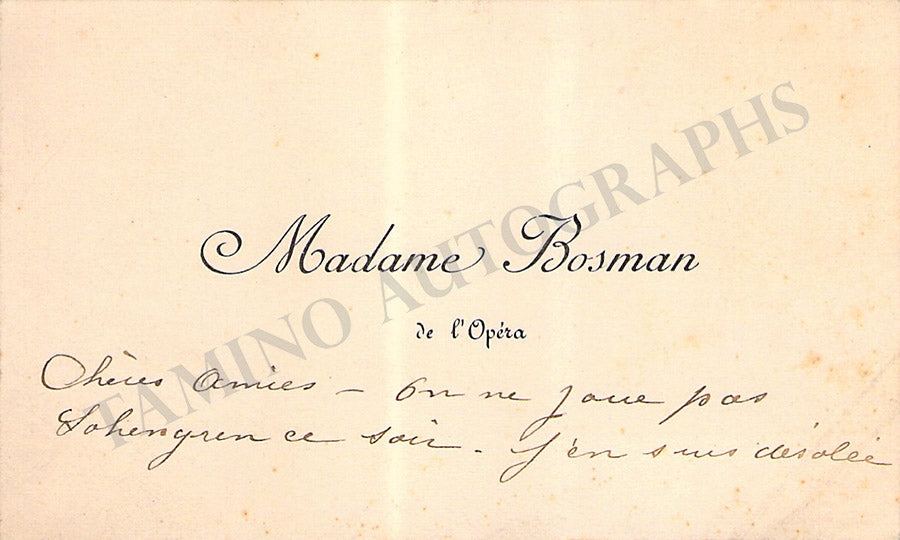 Madame Bosman
de l'Opéra
TAMINO AUTOGRAPHS
Chères Amies – On ne joue pas
Lohengren ce soir. J'en suis désolée